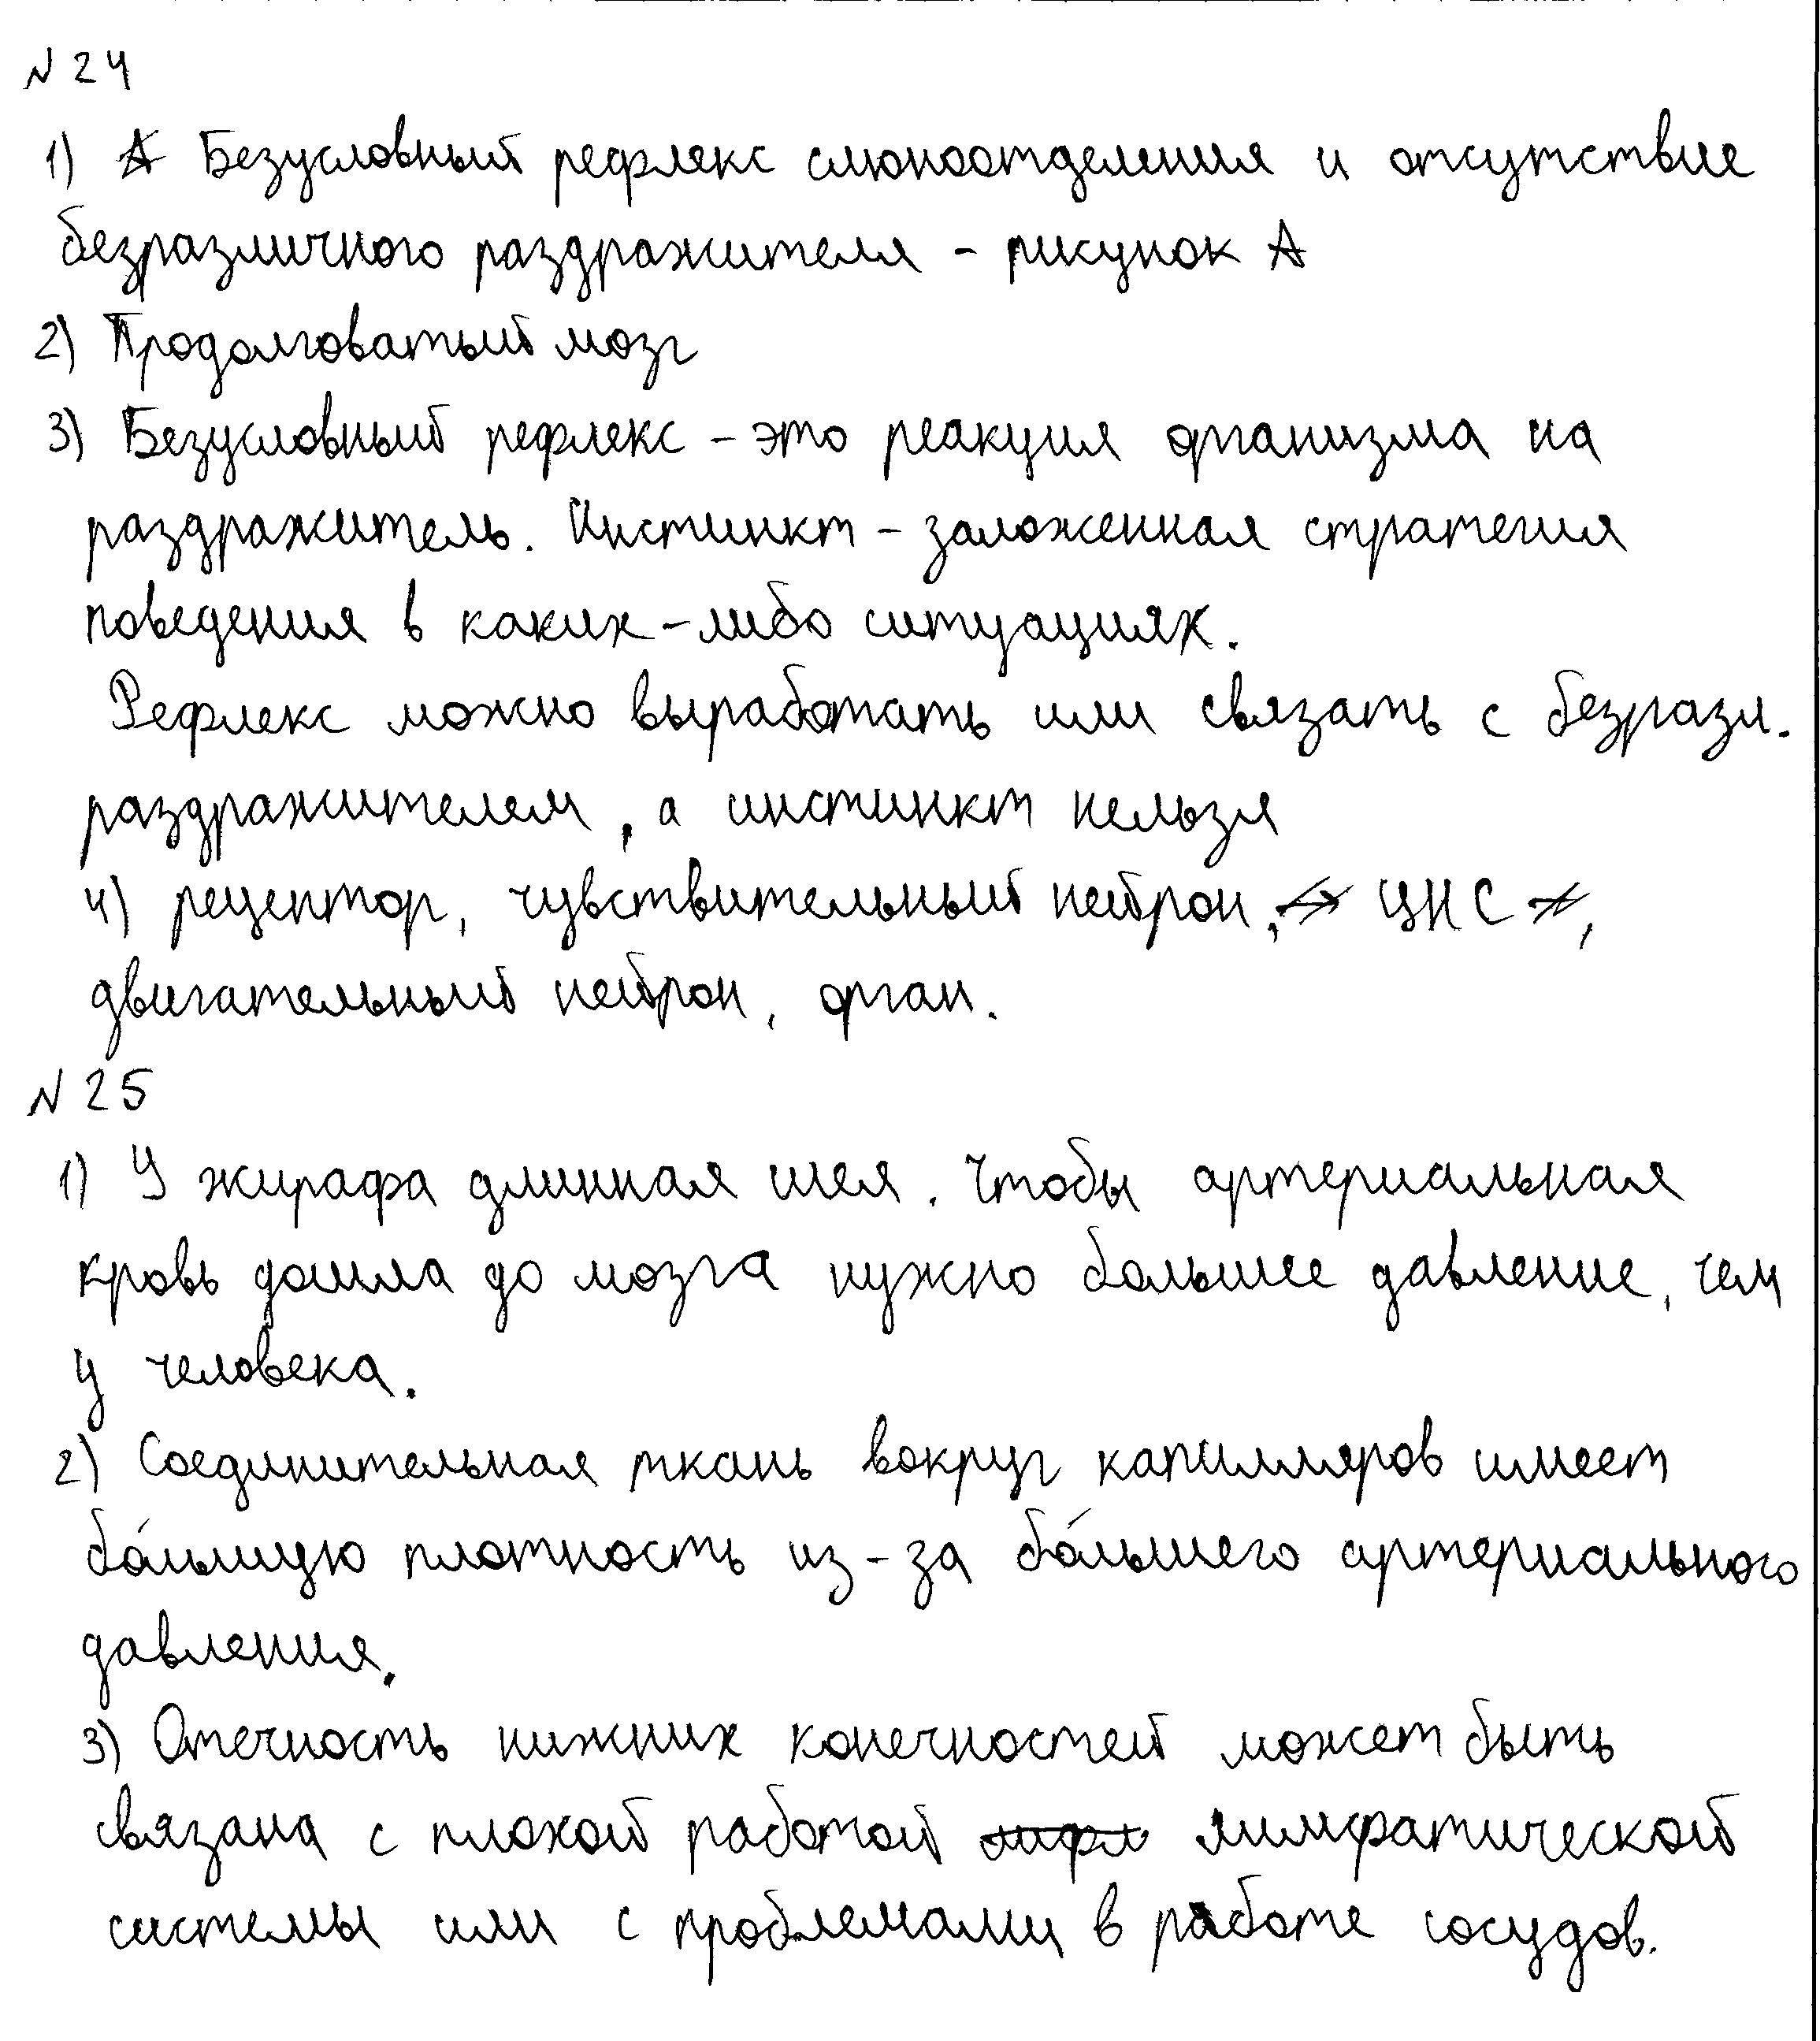 № 24
1) Безусловный рефлекс слюноотделения и отсутствие
безразличного раздражителя - рисунок А
2) Продолговатый мозг
3) Безусловный рефлекс - это реакция организма на
раздражитель. Инстинкт - заложенная стратегия
поведения в каких-либо ситуациях.
Рефлекс можно выработать или связать с безразл.
раздражителем, а инстинкт нельзя
4) рецептор, чувствительный нейрон, ЦНС,
двигательный нейрон, орган.
№ 25
1) У жирафа длинная шея. Чтобы артериальная
кровь дошла до мозга нужно большее давление, чем
у человека.
2) Соединительная ткань вокруг капилляров имеет
бо́льшую плотность из-за бо́льшего артериального
давления.
3) Отечность нижних конечностей может быть
связана с плохой работой лимфатической
системы или с проблемами в работе сосудов.